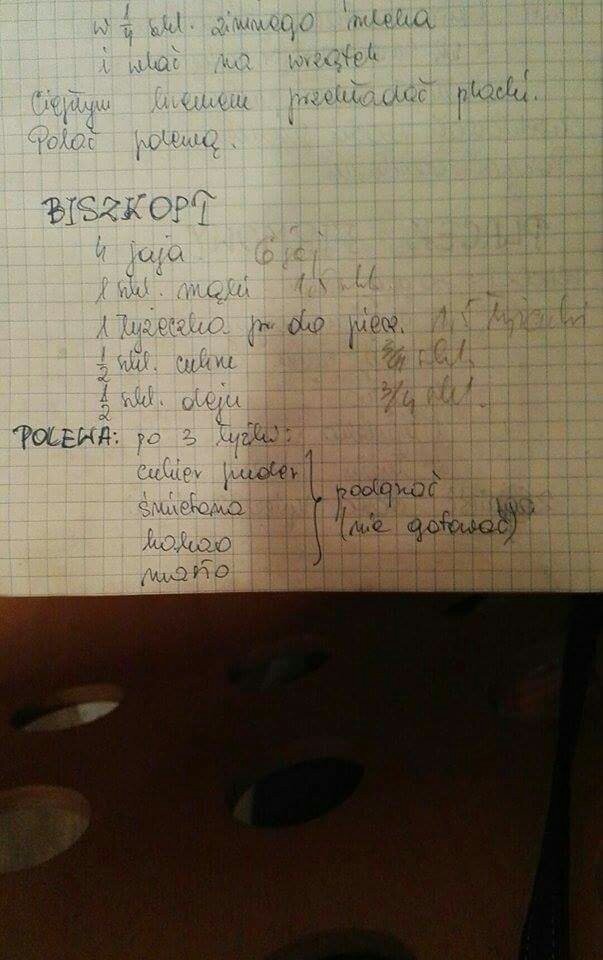 w 1/4 szkl. zimnego mleka
i wlać na wrzątek
Ciepłym kremem przekładać placki.
Polać polewą.
BISZKOPT
4 jaja 6 jaj
1 szkl. mąki 1,5 szkl.
1 łyżeczka pr do piecz. 1,5 łyżeczki
1/2 szkl. cukru 3/4 szkl.
1/2 szkl. oleju 3/4 szkl.
POLEWA: po 3 łyżki:
cukier puder
śmietana
kakao
masło
podgrzać
(nie gotować)